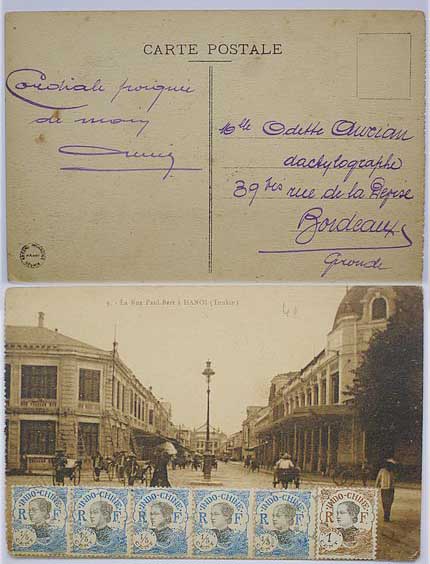 CARTE POSTALE
Cordiale poignée
de main
Mlle Odette Aurian
dactylographe
39 bis rue de la
Bordeaux
Gironde
9. - La Rue Paul-Bert à HANOI (Tonkin)
40
INDO-CHINE
R F
INDO-CHINE
R F
INDO-CHINE
R F
INDO-CHINE
R F
INDO-CHINE
R F
INDO-CHINE
R F